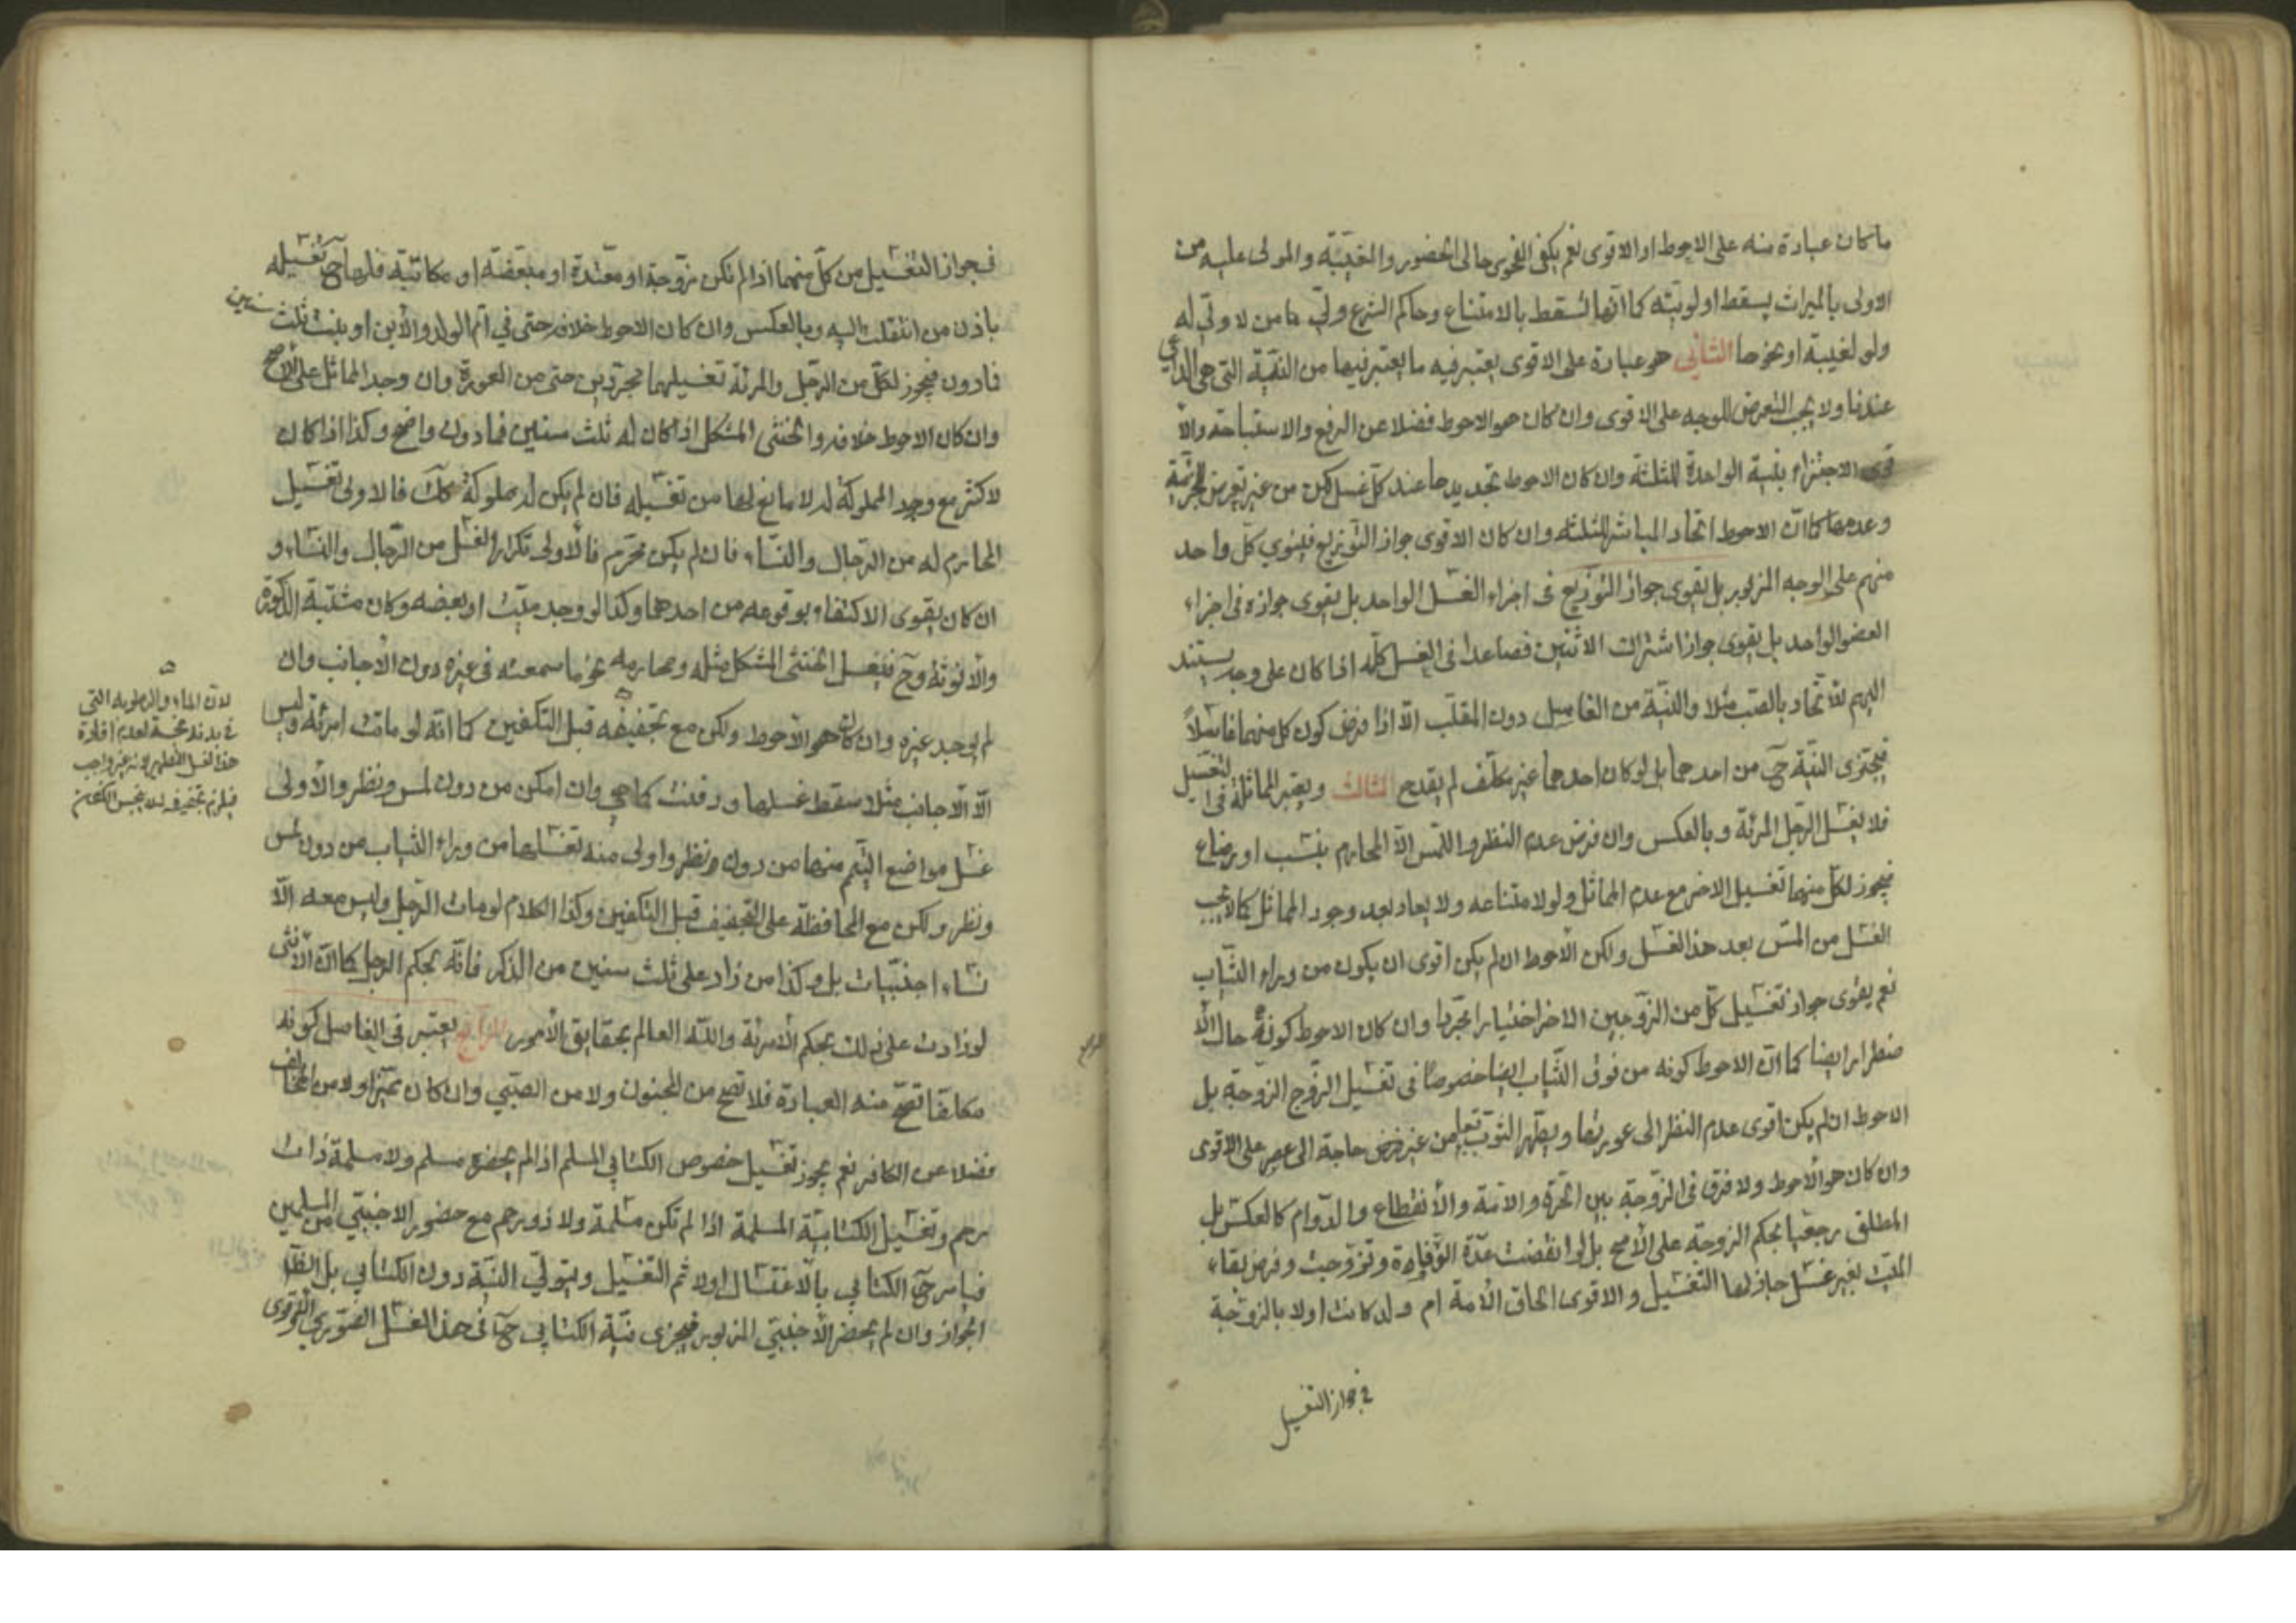 ما كان عبادة منه على الاحوط او الاقوى نعم يكفى الفحوى حالى الحضور والغيبة والمولى عليه من
الاولى بالميراث يسقط اولويته كما انها تسقط بالامتناع وحاكم الشرع ولي من لا ولي له
ولو لغيبة او نحوها الثاني هو عبادة على الاقوى يعتبر فيه ما يعتبر فيها من النية التي هي الداعي
عندنا ولا يجب التعرض للوجه على الاقوى وان كان هو الاحوط فضلا عن الرفع والاستباحة والا
قوى الاجتزاء بنية الواحدة للثلثة وان كان الاحوط تجديدها عند كل غسل لكن من غير تعرض للجزئية
وعدمها كما ان الاحوط اتحاد المباشر للثلثة وان كان الاقوى جواز التوزيع فينوي كل واحد
منهم على الوجه المزبور بل يقوى جواز التوزيع في اجزاء الغسل الواحد بل يقوى جوازه في اجزاء
العضو الواحد بل يقوى جواز اشتراك الاثنين فصاعدا في الغسل كله اذا كان على وجه يستند
اليهم للاتحاد بالصب مثلا والنية من الغاسل دون المقلب الا اذا فرض كون كل منهما غاسلا
فيجتزى النية ح من احدهما بل لو كان احدهما غير مكلف لم يقدح الثالث ويعتبر المماثلة في التغسيل
فلا يغسل الرجل المرئة وبالعكس وان فرض عدم النظر واللمس الا المحارم بنسب او رضاع
فيجوز لكل منهما تغسيل الاخر مع عدم المماثل ولو لامتناعه ولا يعاد بعد وجود المماثل كما لا يجب
الغسل من المس بعد هذا الغسل ولكن الاحوط ان لم يكن اقوى ان يكون من وراء الثياب
نعم يقوى جواز تغسيل كل من الزوجين الاخر اختيارا مجردا وان كان الاحوط كونه حال الا
ضطرار ايضا كما ان الاحوط كونه من فوق الثياب ايضا خصوصا في تغسيل الزوج الزوجة بل
الاحوط ان لم يكن اقوى عدم النظر الى عورتها ويطهر الثوب تبعا من غير فرض حاجة الى عصر على الاقوى
وان كان هو الاحوط ولا فرق في الزوجة بين الحرة والامة والانقطاع والدوام كالعكس بل
المطلق رجعيا بحكم الزوجة على الاصح بل لو انقضت عدة الوفاة وتزوجت وفرض بقاء
الميت بغير غسل جاز لها التغسيل والاقوى الحاق الامة ام ولد كانت اولا بالزوجة
في جواز التغسيل
في جواز التغسيل من كل منهما اذا لم تكن زوجة او معتدة او مبعضة او مكاتبة فلها ح تغسيله
باذن من انتقلت اليه وبالعكس وان كان الاحوط خلافه حتى في ام الولد والابن او بنت ثلث سنين
فادون فيجوز لكل من الرجل والمرئة تغسيلهما مجردين حتى من العورة وان وجد المماثل على الاصح
وان كان الاحوط خلافه والخنثى المشكل اذا كان له ثلث سنين فما دون واضح وكذا اذا كان
لاكثر مع وجود المملوكة له لا مانع لها من تغسيله فان لم يكن له مملوكة كك فالاولى تغسيل
المحارم له من الرجال والنساء فان لم يكن محرم فالاولى تكرار الغسل من الرجال والنساء و
ان كان يقوى الاكتفاء بوقوعه من احدهما وكذا لو وجد ميت او بعضه وكان مشتبه الذكورة
والانوثة وح فيغسل الخنثى المشكل مثله ومحارمه نحو ما سمعته في غيره دون الاجانب وان
لم يوجد غيره وان كان هو الاحوط ولكن مع تجفيفه قبل التكفين كما انه لو ماتت امرئة وليس
الا الاجانب مثلا سقط غسلها ودفنت كما هي وان امكن من دون لمس ونظر والاولى
غسل مواضع التيمم منها من دون نظر واولى منه تغسلها من وراء الثياب من دون لمس
ونظر ولكن مع المحافظة على التجفيف قبل التكفين وكذا الكلام لو مات الرجل وليس معه الا
نساء اجنبيات بل وكذا من زاد على ثلث سنين من الذكر فانه بحكم الرجل كما ان الانثى
لو زادت على ذلك بحكم الامرئة والله العالم بحقايق الامور الرابع يعتبر في الغاسل كونه
مكلفا تصح منه العبادة فلا تصح من المجنون ولا من الصبي وان كان مميزا ولا من المخالف
فضلا عن الكافر نعم يجوز تغسيل خصوص الكتابي المسلم اذا لم يحضره مسلم ولا مسلمة ذات
رحم وتغسيل الكتابية المسلمة اذا لم تكن مسلمة ولا ذو رحم مع حضور الاجنبي من المسلمين
فيامر ح الكتابي بالاغتسال اولا ثم التغسيل ويتولى النية دون الكتابي بل الظاهر
الجواز وان لم يحضر الاجنبي المزبور فيجزى نية الكتابي ح في هذا الغسل الصوري الاقوى
لان الماء والرطوبة التي
في بدنه نجسة لعدم افادة
هذا الغسل التطهير لانه غير واجب
فيلزم تجفيفه لئلا ينجس الكفن